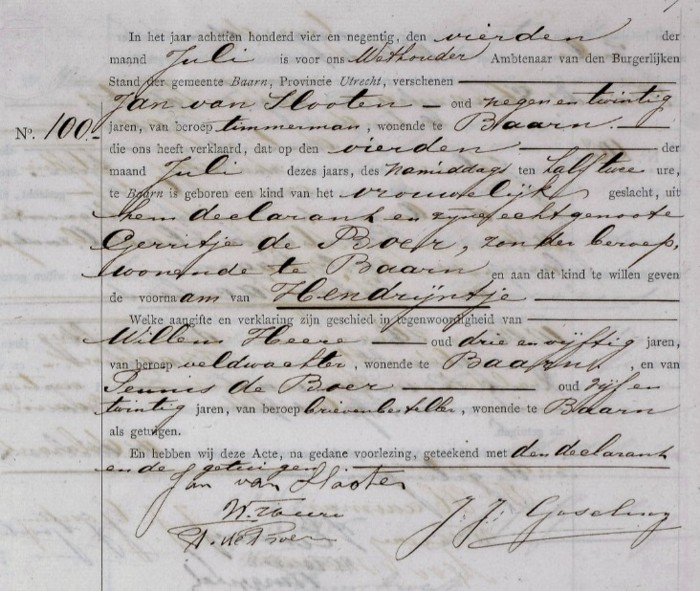 In het jaar achttien honderd vier en negentig, den vierden der
maand Juli is voor ons Wethouder Ambtenaar van den Burgerlijken
Stand der gemeente Baarn, Provincie Utrecht, verschenen
Jan van Slooten oud negen en twintig
No. 100. jaren, van beroep timmerman, wonende te Baarn.
die ons heeft verklaard, dat op den vierden der
maand Juli dezes jaars, des namiddags ten half twee ure,
te Baarn is geboren een kind van het vrouwelijk geslacht, uit
hem declarant en zijne echtgenoote
Gerritje de Boer, zonder beroep,
wonende te Baarn en aan dat kind te willen geven
de voornaam van Hendrijntje
Welke aangifte en verklaring zijn geschied in tegenwoordigheid van
Willem Heere oud drie en vijftig jaren,
van beroep veldwachter, wonende te Baarn, en van
Teunis de Boer oud vijf en
twintig jaren, van beroep brievenbesteller, wonende te Baarn
als getuigen.
En hebben wij deze Acte, na gedane voorlezing, geteekend met den declarant
en de getuigen.
Jan van Slooten
W. Heere
T. de Boer
J. J.